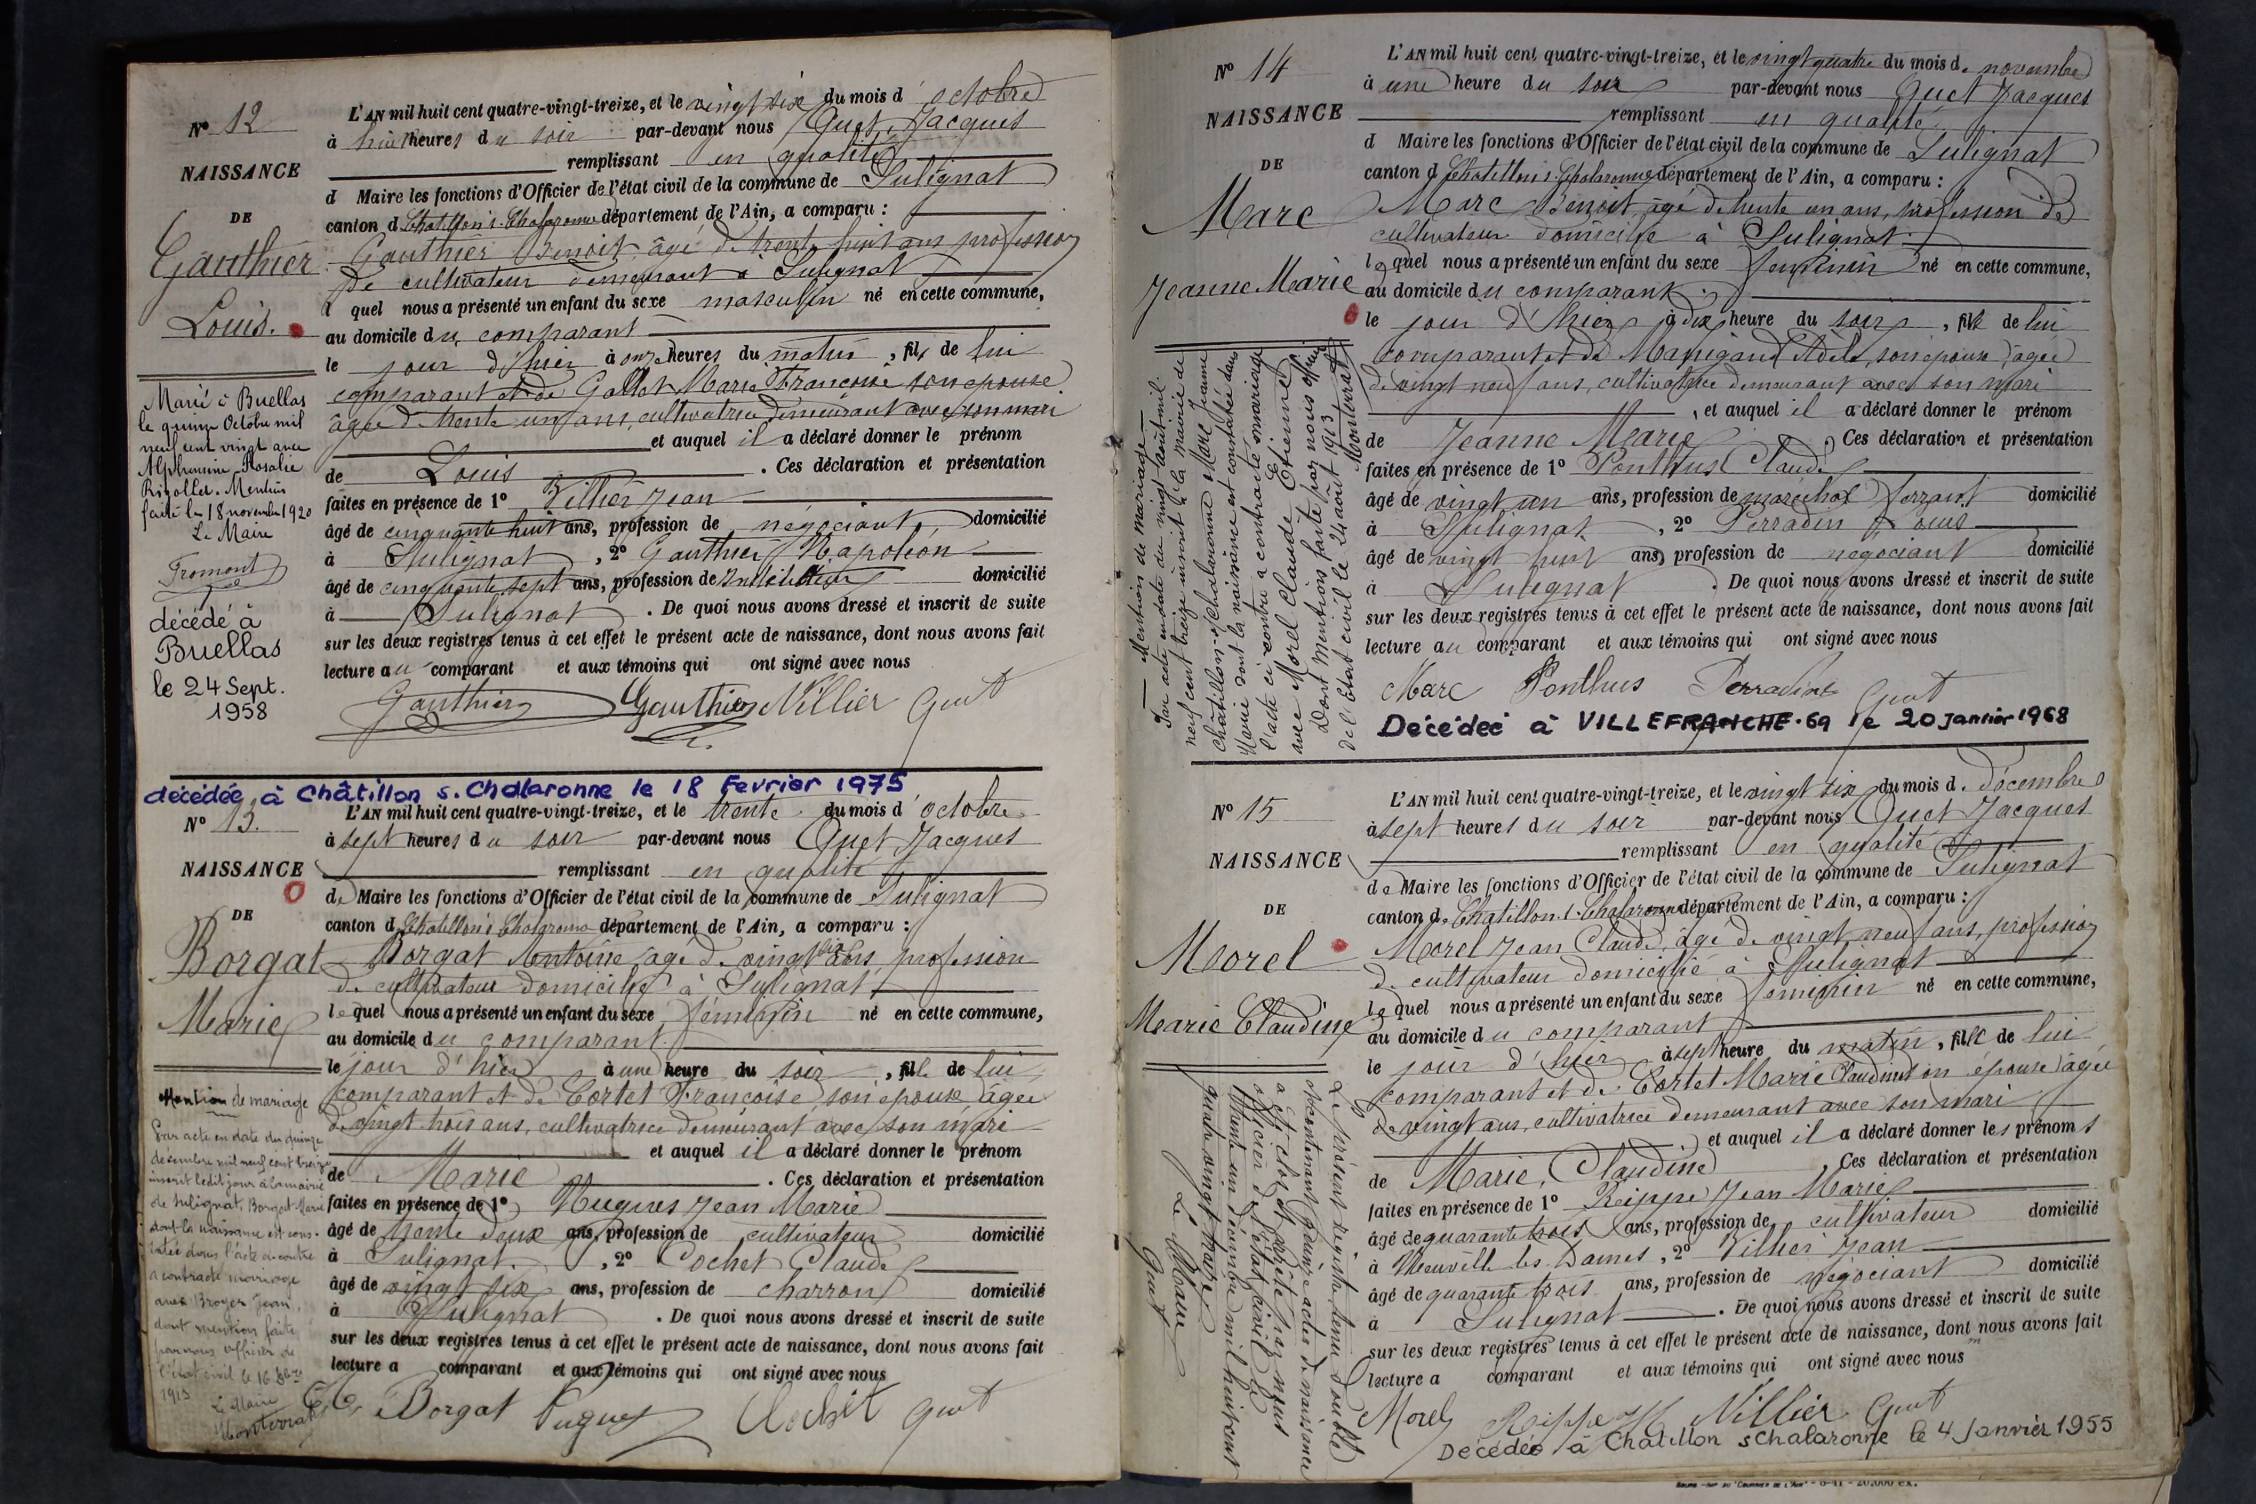 N° 12
NAISSANCE
DE
Gauthier
Louis.
Marié à Buellas
le quinze Octobre mil
neuf cent vingt avec
Alphonsine Rosalie
Rigollet. Mention
faite le 18 novembre 1920
Le Maire
Fromont
décédé à
Buellas
le 24 Sept.
1958
L'AN mil huit cent quatre-vingt-treize, et le vingt six du mois d' octobre
à huit heures du soir par-devant nous Quet Jacques
remplissant en qualité
d Maire les fonctions d'Officier de l'état civil de la commune de Sulignat
canton d Chatillon s. Chalaronne département de l'Ain, a comparu :
Gauthier Benoit âgé de trente huit ans profession
de cultivateur demeurant à Sulignat
l quel nous a présenté un enfant du sexe masculin né en cette commune,
au domicile du comparant
le jour d'hier à onze heures du matin, fils de lui
comparant et de Gallet Marie Françoise son épouse
âgée de trente un ans, cultivatrice demeurant avec son mari
et auquel il a déclaré donner le prénom
de Louis. Ces déclaration et présentation
faites en présence de 1° Villier Jean
âgé de cinquante huit ans, profession de négociant, domicilié
à Sulignat, 2° Gauthier Napoléon
âgé de cinquante sept ans, profession de domicilié
à Sulignat. De quoi nous avons dressé et inscrit de suite
sur les deux registres tenus à cet effet le présent acte de naissance, dont nous avons fait
lecture au comparant et aux témoins qui ont signé avec nous
Gauthier Gauthier Villier Quet
décédée à Châtillon s. Chalaronne le 18 Fevrier 1975
N° 13.
NAISSANCE
DE
Borgat
Marie
Mention de mariage
Par acte en date du quinze
décembre mil neuf cent treize
inscrit ledit jour à la mairie
de Sulignat, Borgat Marie
dont la naissance est cons-
tatée dans l'acte ci-contre
a contracté mariage
avec Broyer Jean,
dont mention faite
par nous officier de
l'état civil le 16 Xbre
1913
Le Maire
Montevrat
L'AN mil huit cent quatre-vingt-treize, et le trente du mois d' octobre
à sept heures du soir par-devant nous Quet Jacques
remplissant en qualité
de Maire les fonctions d'Officier de l'état civil de la commune de Sulignat
canton d Chatillon s Chalaronne département de l'Ain, a comparu :
Borgat Antoine âgé de vingt six ans profession
de cultivateur domicilié à Sulignat
lequel nous a présenté un enfant du sexe féminin né en cette commune,
au domicile du comparant
le jour d'hier à une heure du soir, fille de lui
comparant et de Cortet Françoise, son épouse âgée
de vingt trois ans, cultivatrice demeurant avec son mari
et auquel il a déclaré donner le prénom
de Marie. Ces déclaration et présentation
faites en présence de 1° Hugues Jean Marie
âgé de trente deux ans, profession de cultivateur domicilié
à Sulignat, 2° Cochet Claude
âgé de vingt six ans, profession de charron domicilié
à Sulignat. De quoi nous avons dressé et inscrit de suite
sur les deux registres tenus à cet effet le présent acte de naissance, dont nous avons fait
lecture a comparant et aux témoins qui ont signé avec nous
Borgat Cochet Quet
N° 14
NAISSANCE
DE
Marc
Jeanne Marie
Mention de mariage
Par acte en date du vingt août mil
neuf cent treize inscrit à la mairie de
Châtillon s/ Chalaronne Marc Jeanne
Marie dont la naissance est constatée dans
l'acte ci contre a contracté mariage
avec Morel Claude Etienne
Dont Mention faite par nous officier
de l'état civil le 24 août 1913
Montevrat
L'AN mil huit cent quatre-vingt-treize, et le vingt quatre du mois de novembre
à une heure du soir par-devant nous Quet Jacques
remplissant en qualité
d Maire les fonctions d'Officier de l'état civil de la commune de Sulignat
canton d Chatillon s. Chalaronne département de l'Ain, a comparu :
Marc Benoit, âgé de trente un ans, profession de
cultivateur domicilié à Sulignat
lequel nous a présenté un enfant du sexe féminin né en cette commune,
au domicile du comparant
le jour d'hier à dix heure du soir, fille de lui
comparant et de Manigand Adèle, son épouse âgée
de vingt neuf ans, cultivatrice demeurant avec son mari
, et auquel il a déclaré donner le prénom
de Jeanne Marie, Ces déclaration et présentation
faites en présence de 1° Ponthus Claude
âgé de vingt un ans, profession de maréchal ferrant domicilié
à Sulignat, 2° Perradin Louis
âgé de vingt huit ans, profession de négociant domicilié
à Sulignat. De quoi nous avons dressé et inscrit de suite
sur les deux registres tenus à cet effet le présent acte de naissance, dont nous avons fait
lecture au comparant et aux témoins qui ont signé avec nous
Marc Ponthus Perradin Quet
Décédée à VILLEFRANCHE.69 le 20 Janvier 1968
N° 15
NAISSANCE
DE
Morel
Marie Claudine
Le présent registre tenu double
contenant quinze actes de naissance
a été clos et arrêté par nous
officier de l'état civil le
trente un décembre mil huit cent
quatre vingt treize
Le Maire
Quet
L'AN mil huit cent quatre-vingt-treize, et le vingt six du mois d. décembre
à sept heures du soir par-devant nous Quet Jacques
remplissant en qualité
de Maire les fonctions d'Officier de l'état civil de la commune de Sulignat
canton d. Chatillon s. Chalaronne département de l'Ain, a comparu :
Morel Jean Claude, âgé de vingt neuf ans, profession
de cultivateur domicilié à Sulignat
lequel nous a présenté un enfant du sexe féminin né en cette commune,
au domicile du comparant
le jour d'hier à sept heure du matin, fille de lui
comparant et de Cortet Marie Claudine son épouse âgée
de vingt ans, cultivatrice demeurant avec son mari
, et auquel il a déclaré donner les prénoms
de Marie, Claudine, Ces déclaration et présentation
faites en présence de 1° Reippe Jean Marie
âgé de quarante trois ans, profession de cultivateur domicilié
à Neuville les Dames, 2° Villier Jean
âgé de quarante trois ans, profession de négociant domicilié
à Sulignat. De quoi nous avons dressé et inscrit de suite
sur les deux registres tenus à cet effet le présent acte de naissance, dont nous avons fait
lecture a comparant et aux témoins qui ont signé avec nous
Morel Reippe Villier Quet
Décédée à Chatillon s Chalaronne le 4 Janvier 1955